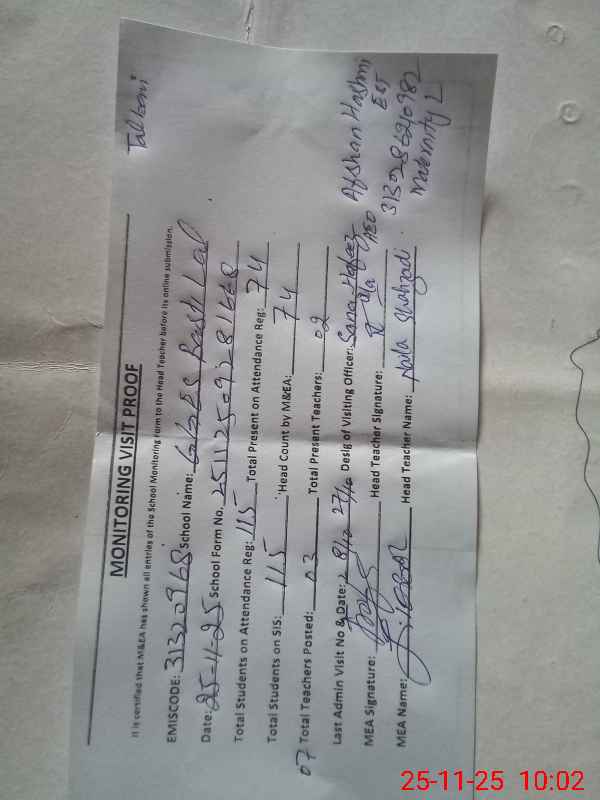 Talkani
MONITORING VISIT PROOF
It is certified that M&EA has shown all entries of the School Monitoring Form to the Head Teacher before its online submission.
EMISCODE: 31320968 School Name: GGES Basti Lal
Date: 25-11-25 School Form No. 251125093281668
Total Students on Attendance Reg: 115 Total Present on Attendance Reg: 74
Total Students on SIS: 115 Head Count by M&EA: 74
07 Total Teachers Posted: 03 Total Present Teachers: 02
Last Admin Visit No & Date: 2 8/10 27/10 Desig of Visiting Officer: Sana Hafeez AEO
MEA Signature: Head Teacher Signature:
MEA Name: Head Teacher Name: Naila Shahzadi
Afshan Hashmi
EST
Maternity L
25-11-25 10:02